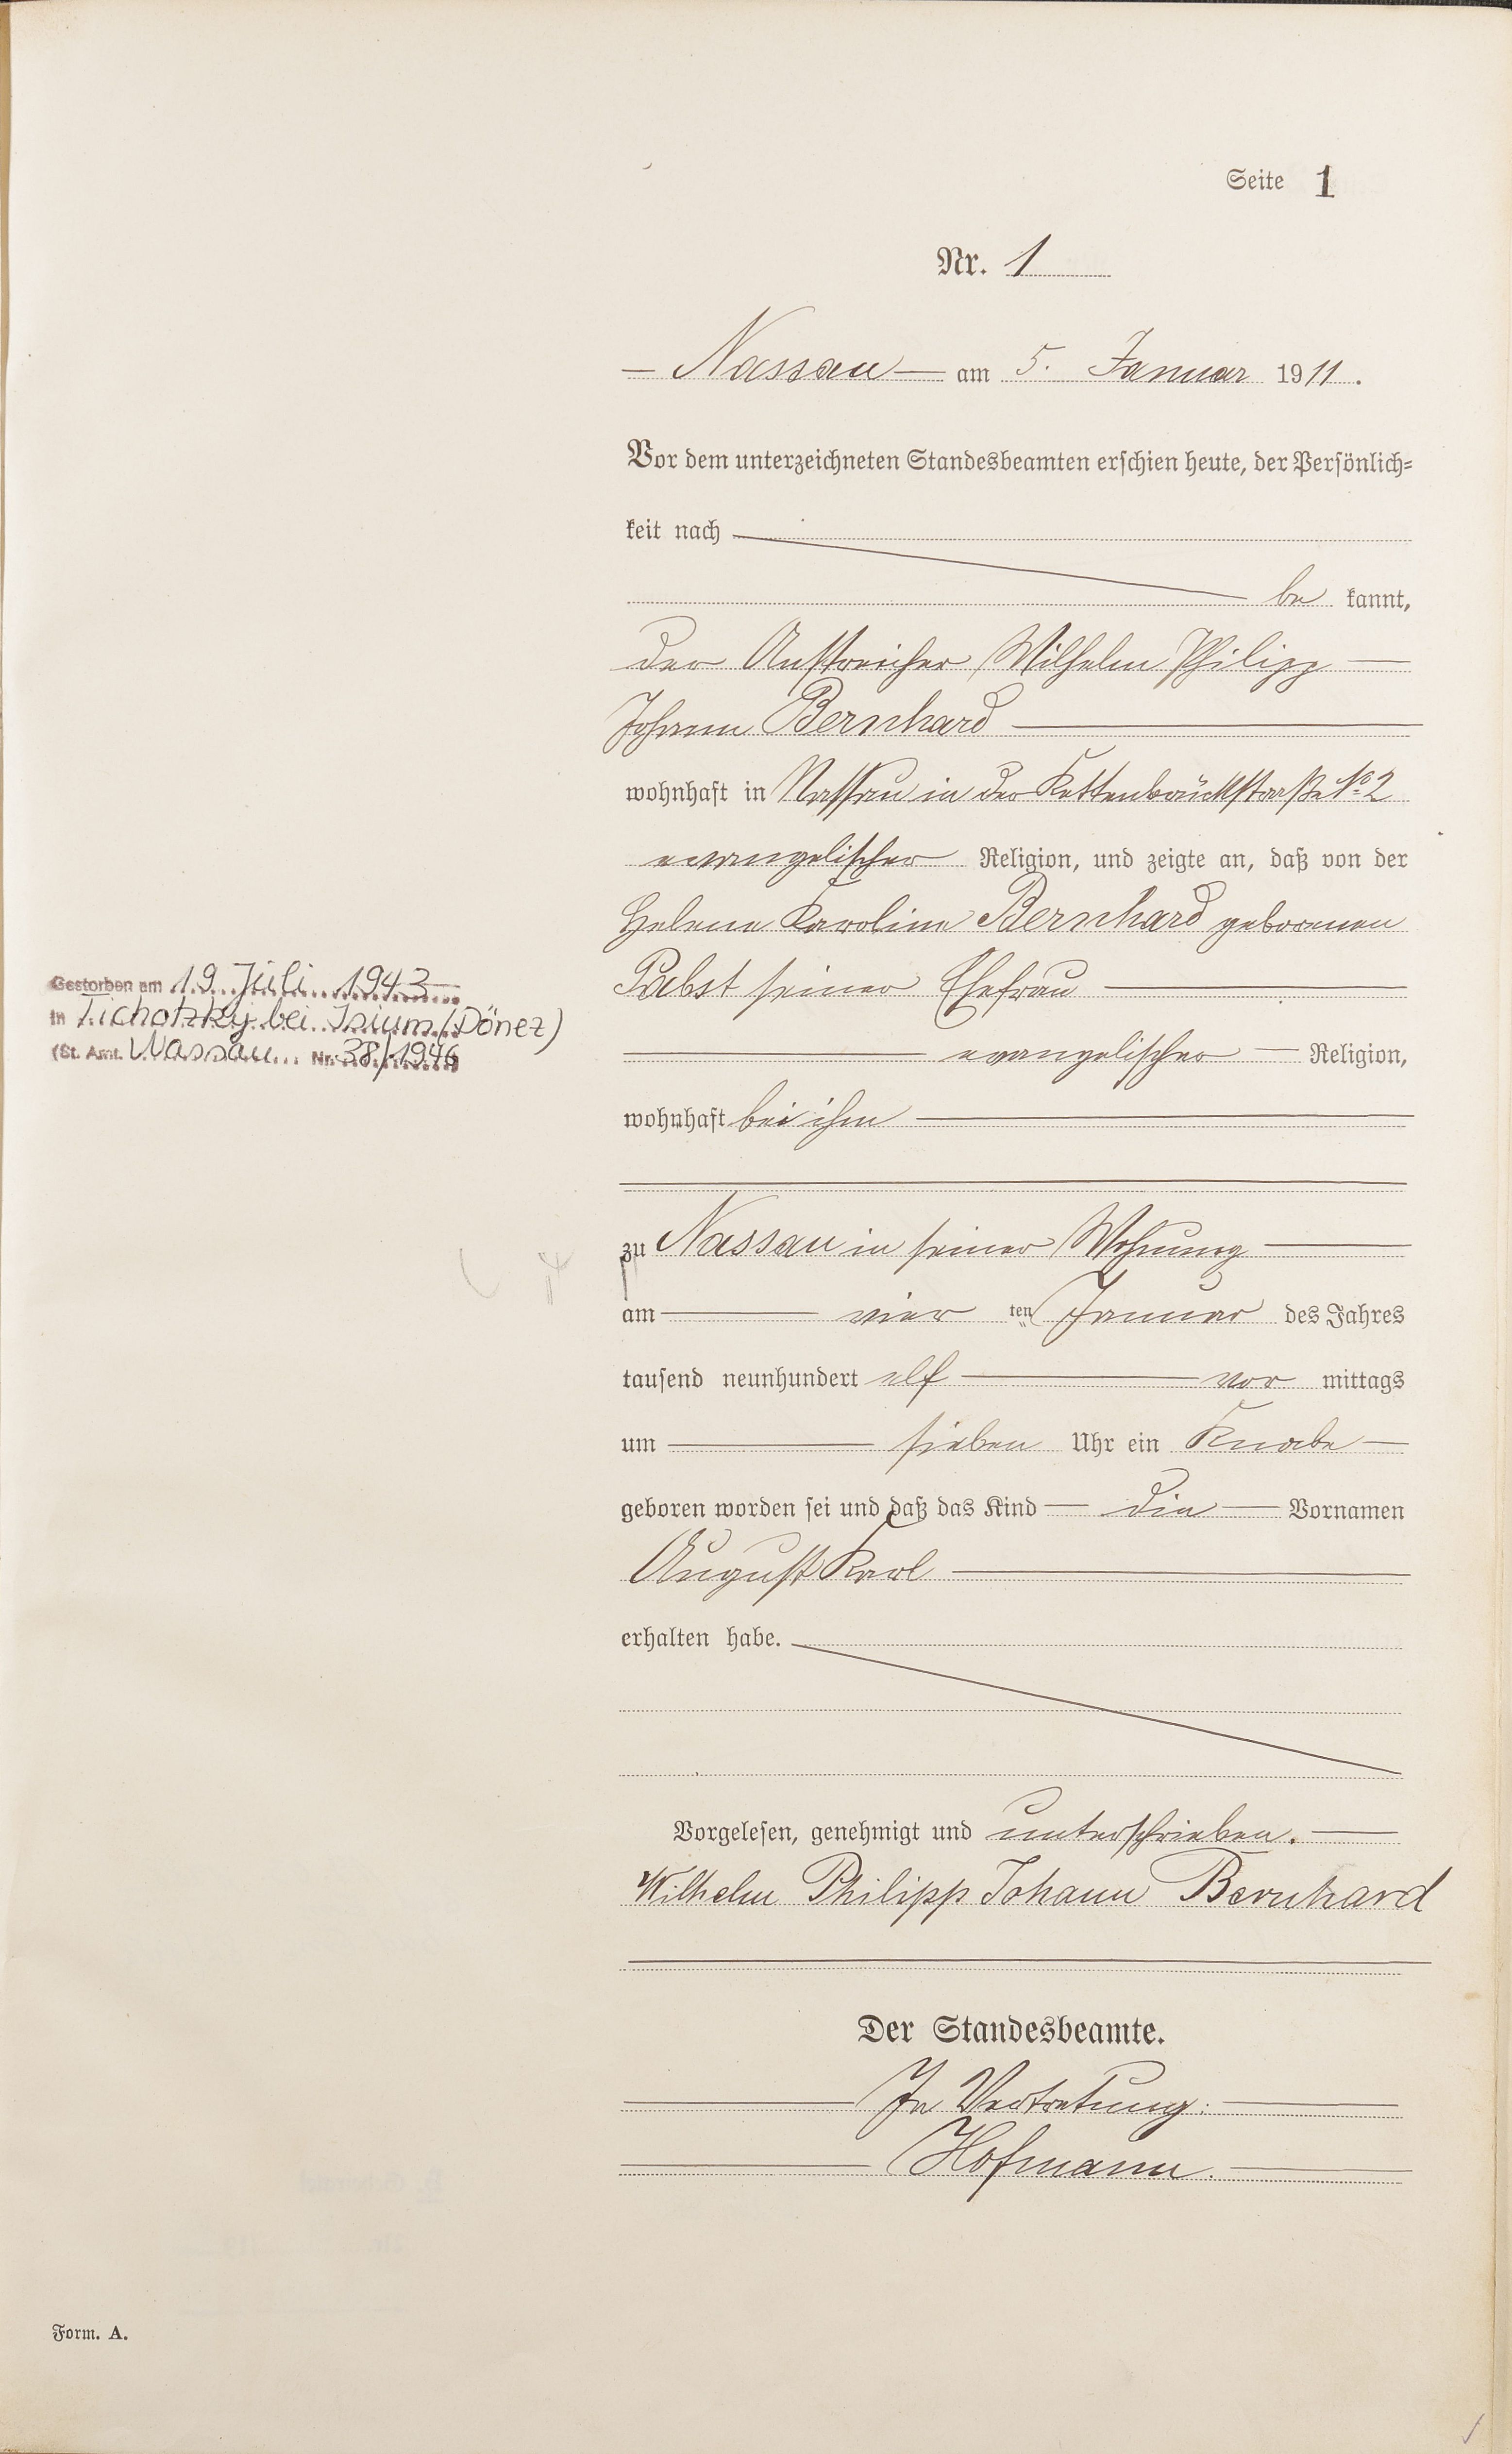 Seite 1
Nr. 1
Nassau am 5. Januar 1911.
Vor dem unterzeichneten Standesbeamten erschien heute, der Persönlich=
keit nach
be kannt,
der Anstreicher Wilhelm Philipp
Johann Bernhard
wohnhaft in Nassau in der Kettenbrückstraße No. 2
evangelischer Religion, und zeigte an, daß von der
Helene Karoline Bernhard geborenen
Pabst seiner Ehefrau
evangelischer Religion,
wohnhaft bei ihm
zu Nassau in seiner Wohnung
am vier ten Januar des Jahres
tausend neunhundert elf vor mittags
um sieben Uhr ein Knabe
geboren worden sei und daß das Kind die Vornamen
August Karl
erhalten habe.
Vorgelesen, genehmigt und unterschrieben.
Wilhelm Philipp Johann Bernhard
Der Standesbeamte.
In Vertretung:
Hofmann.
Gestorben am 19. Juli 1943
in Tichotzky bei Isium (Dönez)
(St. Amt. Nassau Nr. 38/1946
Form. A.